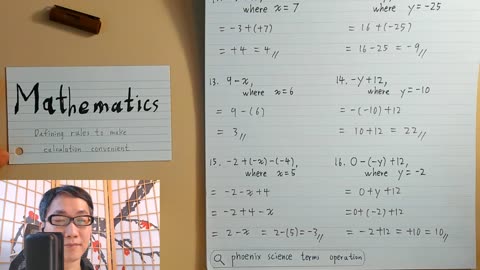 Mathematics
Defining rules to make
calculation convenient
where x=7
= -3+(+7)
= +4 = 4
where y=-25
= 16+(-25)
= 16-25 = -9
13. 9-x,
where x=6
= 9-(6)
= 3
14. -y+12,
where y=-10
= -(-10)+12
= 10+12 = 22
15. -2+(-x)-(-4),
where x=5
= -2-x+4
= -2+4-x
= 2-x = 2-(5)=-3
16. 0-(-y)+12,
where y=-2
= 0+y+12
= 0+(-2)+12
= -2+12 = +10 = 10
phoenix science terms operation